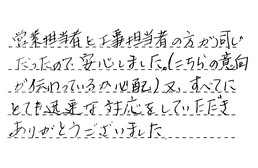 営業担当者と工事担当者の方が同じ
だったので安心しました。(こちらの意向
が伝わっているの心配)又、すべてに
とても迅速な対応をしていただき
ありがとうございました